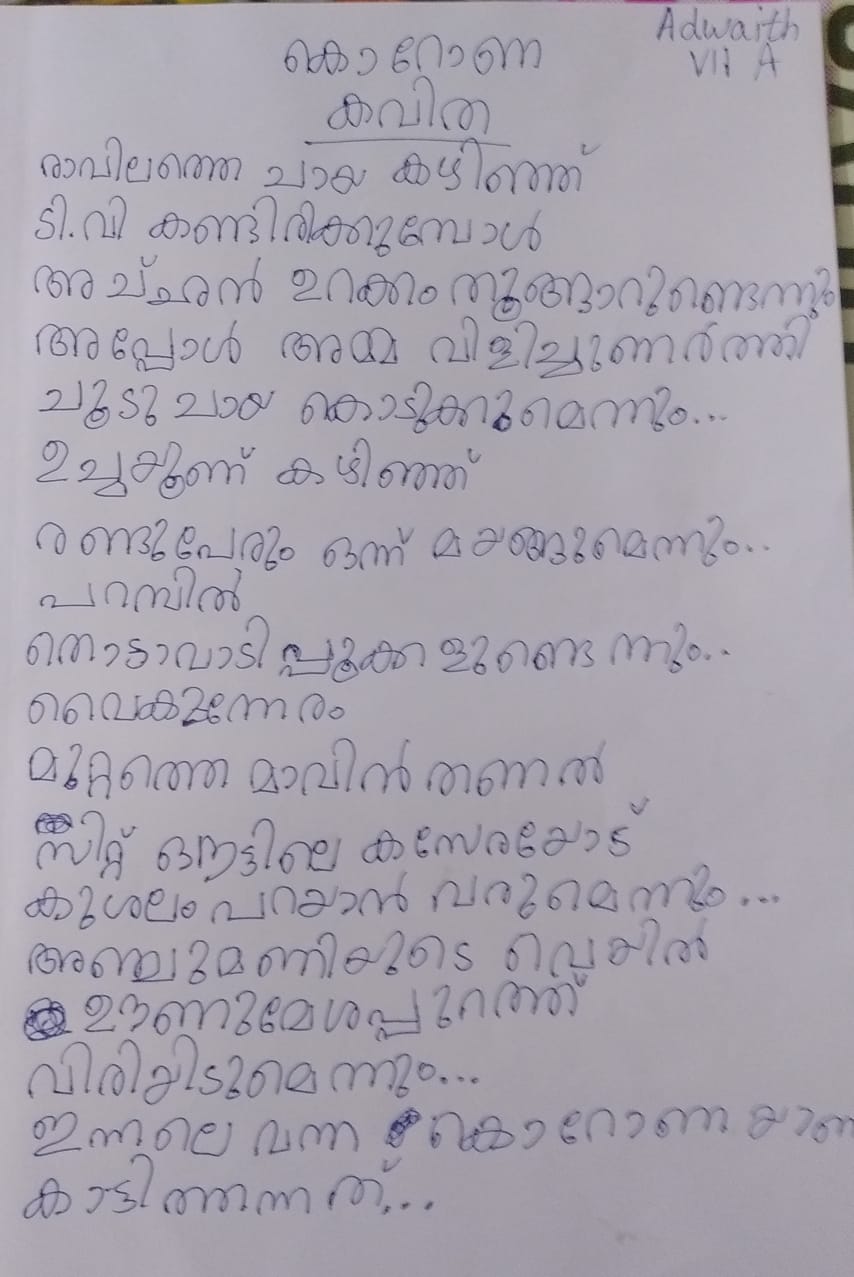 Adwaith
VII A
കൊറോണ
കവിത
രാവിലത്തെ ചായ കഴിഞ്ഞ്
ടി.വി കണ്ടിരിക്കുമ്പോൾ
അച്ഛൻ ഉറക്കം തൂങ്ങാറുണ്ടെന്നും
അപ്പോൾ അമ്മ വിളിച്ചുണർത്തി
ചൂടു ചായ കൊടുക്കുമെന്നും...
ഉച്ചയൂണ് കഴിഞ്ഞ്
രണ്ടുപേരും ഒന്ന് മയങ്ങുമെന്നും..
പറമ്പിൽ
തൊട്ടാവാടി പ്പൂക്കളുണ്ടെന്നും..
വൈകുന്നേരം
മുറ്റത്തെ മാവിൻ തണൽ
സിറ്റ് ഔട്ടിലെ കസേരയോട്
കുശലം പറയാൻ വരുമെന്നും...
അഞ്ചുമണിയുടെ വെയിൽ
ഊണുമേശപ്പുറത്ത്
വിരിയിടുമെന്നും...
ഇന്നലെ വന്ന കൊറോണ യാണ
കാട്ടിത്തന്നത്...